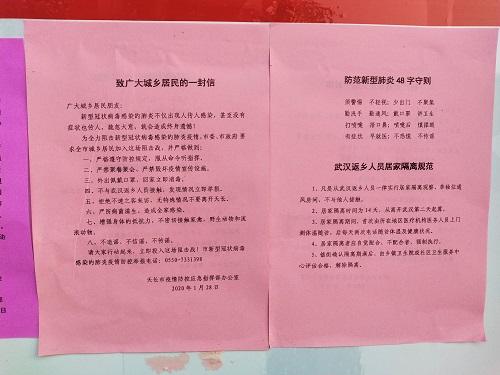 致广大城乡居民的一封信
广大城乡居民朋友:
新型冠状病毒感染的肺炎不仅出现人传人感染,甚至没有
症状也传人,疏忽大意,就会造成终身遗憾!
为全力阻击新型冠状病毒感染的肺炎疫情,市委、市政府要
求全市城乡居民加入这场阻击战,并严格做到:
一、严格遵守防控规定,服从命令听指挥。
二、严禁聚餐聚会,严禁毁坏疫情宣传设施。
三、外出佩戴口罩,回家立即消毒。
四、不与武汉返乡人员接触,发现情况立即举报。
五、拒绝不速之客来访,无特殊情况不要离开天长。
六、严防病菌滋生,造成全家感染。
七、增强身体的抵抗力,不密切接触家禽、野生动物和流
浪动物。
八、不造谣、不信谣、不传谣。
请大家行动起来,立即投入这场阻击战!市新型冠状病毒
感染的肺炎疫情防控举报电话:0550-7331398
天长市疫情防控应急指挥部办公室
2020 年 1 月 28 日
防范新型肺炎 48 字守则
须警惕 不轻视; 少出门 不聚集
勤洗手 勤通风; 戴口罩 讲卫生
打喷嚏 捂口鼻; 喷嚏后 慎揉眼
有症状 早就医; 不恐慌 不传谣
武汉返乡人员居家隔离规范
1、凡是从武汉返乡人员一律实行居家隔离观察,单独住通
风房间,不与他人接触。
2、居家隔离时间为 14 天,从离开武汉第二天起算。
3、居家隔离期间,首次由所在辖区医疗机构医务人员上门
测体温随访,后每天两次电话随访体温及健康状况。
4、居家隔离者应自觉配合,不配合者,强制执行。
5、福